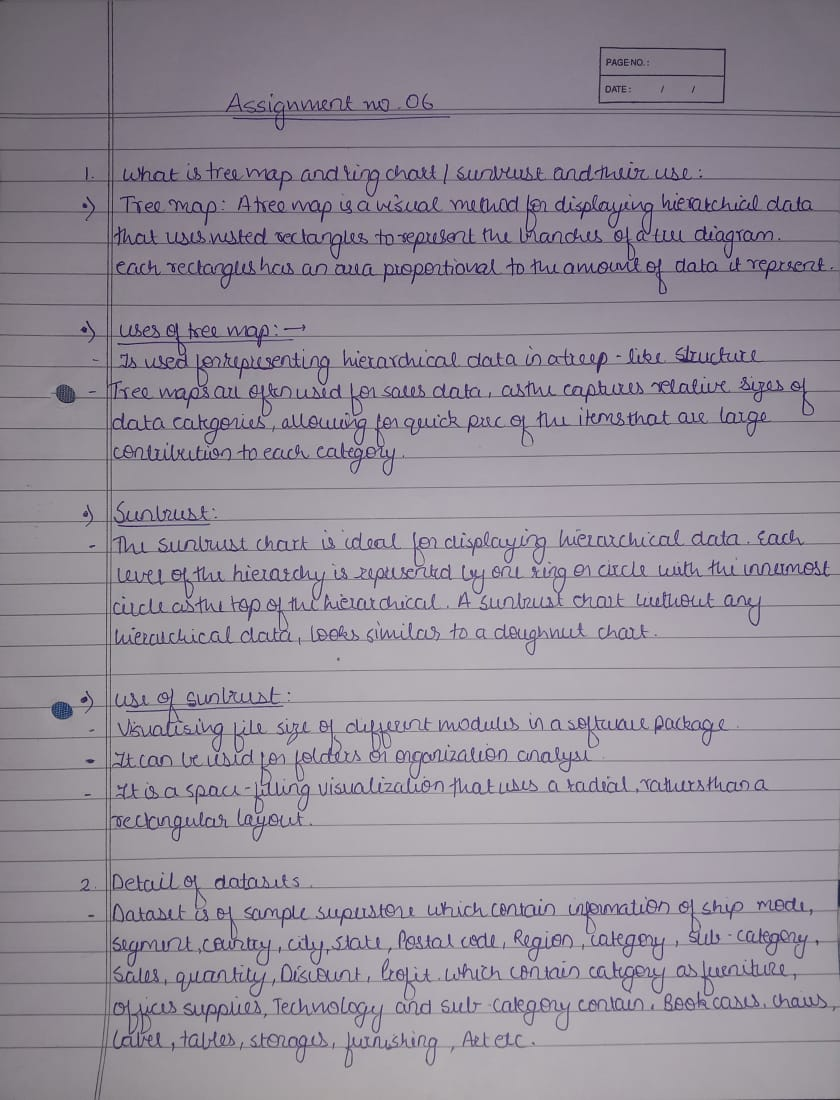 PAGE NO.:
DATE: / /
Assignment no. 06
1. What is tree map and ring chart / sunbrust and their use:
Tree map: A tree map is a visual method for displaying hierarchial data
that uses nested rectangles to represent the branches of a tree diagram.
each rectangles has an area proportional to the amount of data it represent.
uses of tree map: →
- Is used for representing hierarchical data in a treep-like structure
- Tree maps are often used for sales data, as the captures relative sizes of
data categories, allowing for quick perc of the items that are large
contribution to each category.
Sunbrust:
- The sunbrust chart is ideal for displaying hierarchical data. Each
level of the hierarchy is represented by one ring or circle with the innermost
circle as the top of the hierarchical. A sunbrust chart without any
hierarchical data, looks similar to a doughnut chart.
use of sunbrust:
- Visualising file size of different modules in a software package.
- It can be used for folders or organization analysi
- It is a space-filling visualization that uses a radial, rathers than a
rectangular layout.
2. Detail of datasets.
- Dataset is of sample superstore which contain information of ship mode,
segment, country, city, state, Postal code, Region, category, sub-category,
Sales, quantity, Discount, Profit. which contain category as furniture,
offices supplies, Technology and sub-category contain, Book cases, chairs,
Label, tables, storages, furnishing, Art etc.